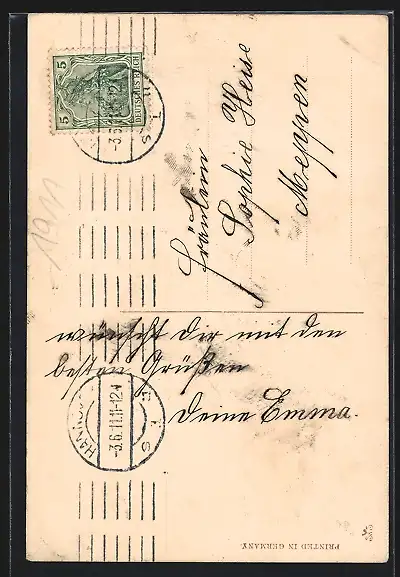 5 5
DEUTSCHES REICH
-3.6.
1911
Fräulein
Sophie Heise
Meppen
wünscht Dir mit den
besten Grüßen
Deine Emma.
-3.6.11.11-12V
PRINTED IN GERMANY.